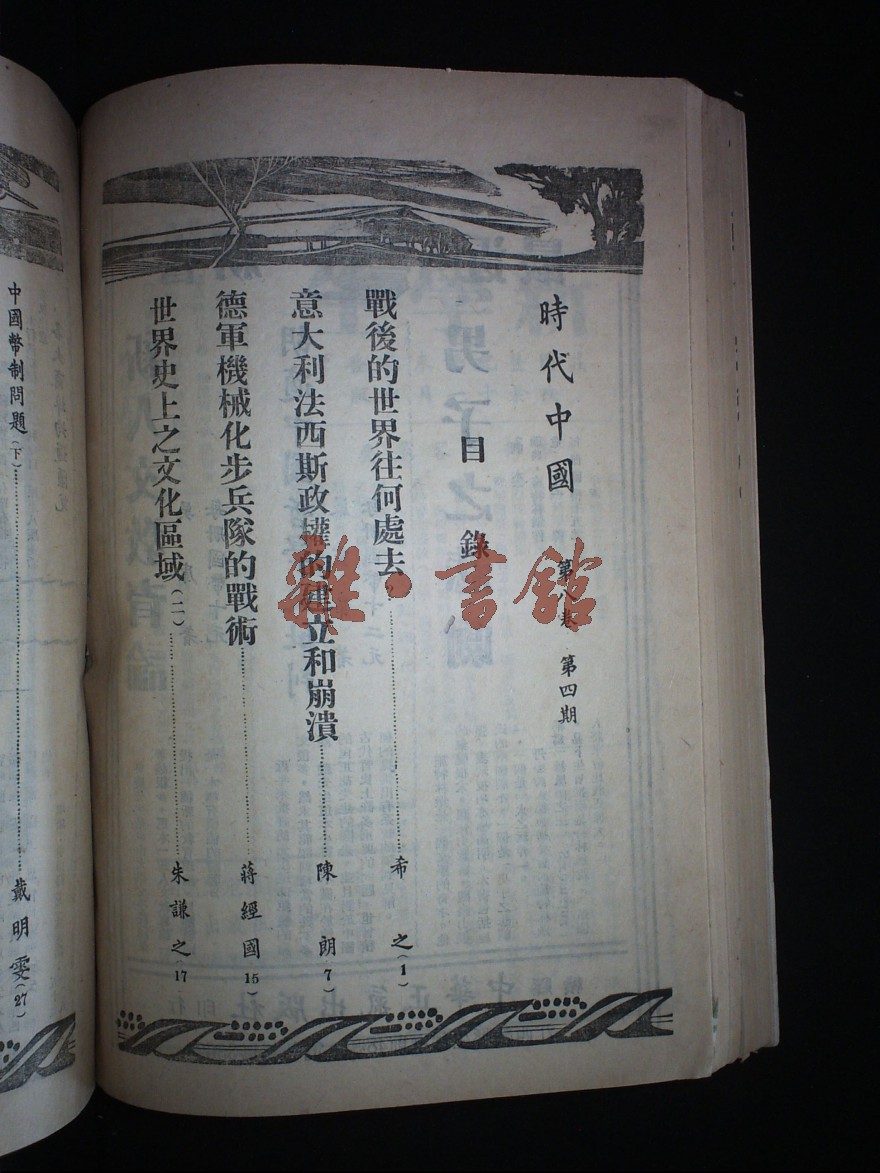 時代中國 第八卷 第四期
目錄
戰後的世界往何處去……希之(1)
意大利法西斯政權的建立和崩潰……陳朗(7)
德軍機械化步兵隊的戰術……蔣經國(15)
世界史上之文化區域(二)……朱謙之(17)
中國幣制問題(下)……戴明雯(27)
雜·書館